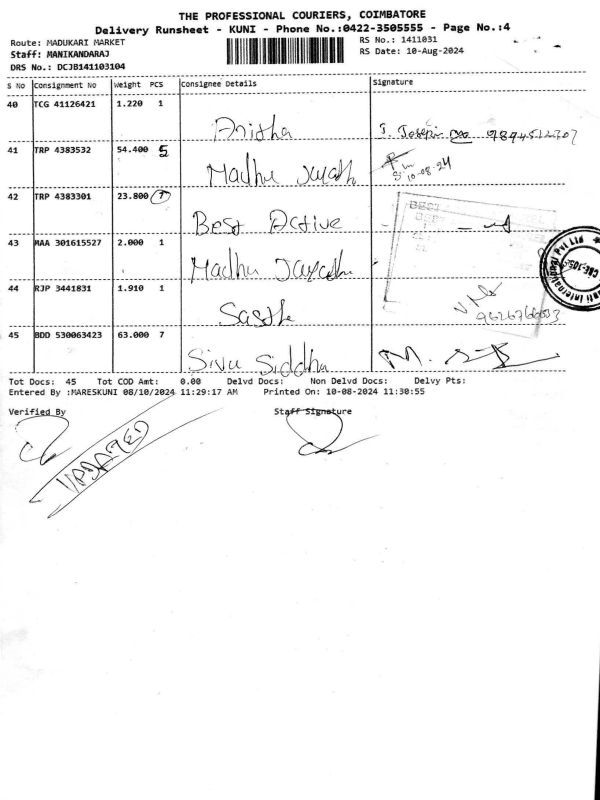 THE PROFESSIONAL COURIERS, COIMBATORE
Delivery Runsheet - KUNI - Phone No.:0422-3505555 - Page No.:4
Route: MADUKARI MARKET
RS No.: 1411031
Staff: MANIKANDARAJ
RS Date: 10-Aug-2024
DRS No.: DCJB141103104
S No Consignment No Weight PCS Consignee Details Signature
40 TCG 41126421 1.220 1
Anitha J. Joseph
41 TRP 4383532 54.400 5
Madhu 10-08-24
42 TRP 4383301 23.800 7
Best Active
43 MAA 301615527 2.000 1
Madhu
44 RJP 3441831 1.910 1
Sasthe
45 BDD 530063423 63.000 7
Siva Siddha
Tot Docs: 45 Tot COD Amt: 0.00 Delvd Docs: Non Delvd Docs: Delvy Pts:
Entered By :MARESKUNI 08/10/2024 11:29:17 AM Printed On: 10-08-2024 11:30:55
Verified By Staff Signature
UPDATED